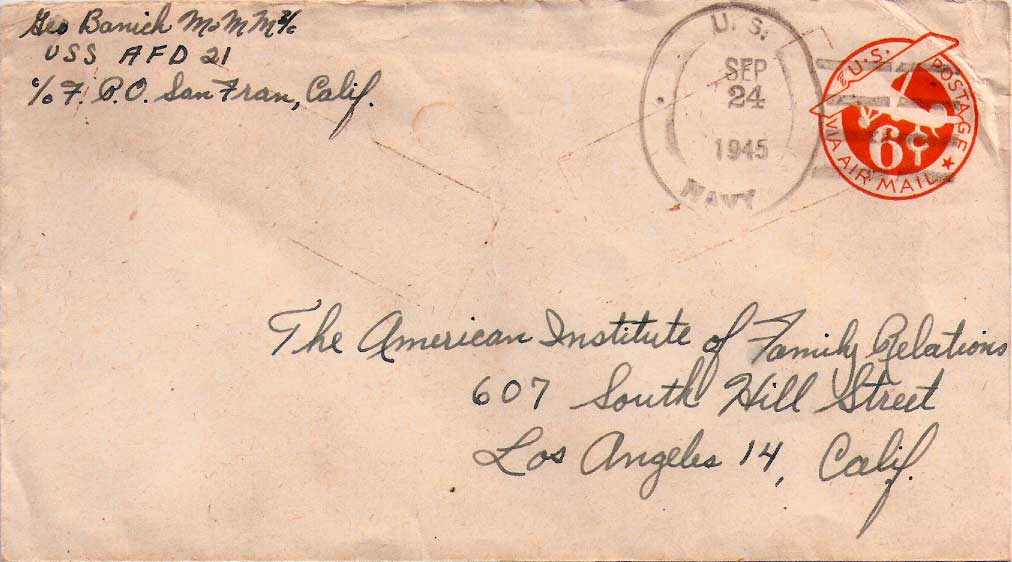 Geo Banich MoMM 2/c
USS AFD 21
c/o F. P.O. San Fran, Calif.
U.S.
SEP
24
1945
NAVY
U.S. POSTAGE
6¢
VIA AIR MAIL
The American Institute of Family Relations
607 South Hill Street
Los Angeles 14, Calif.